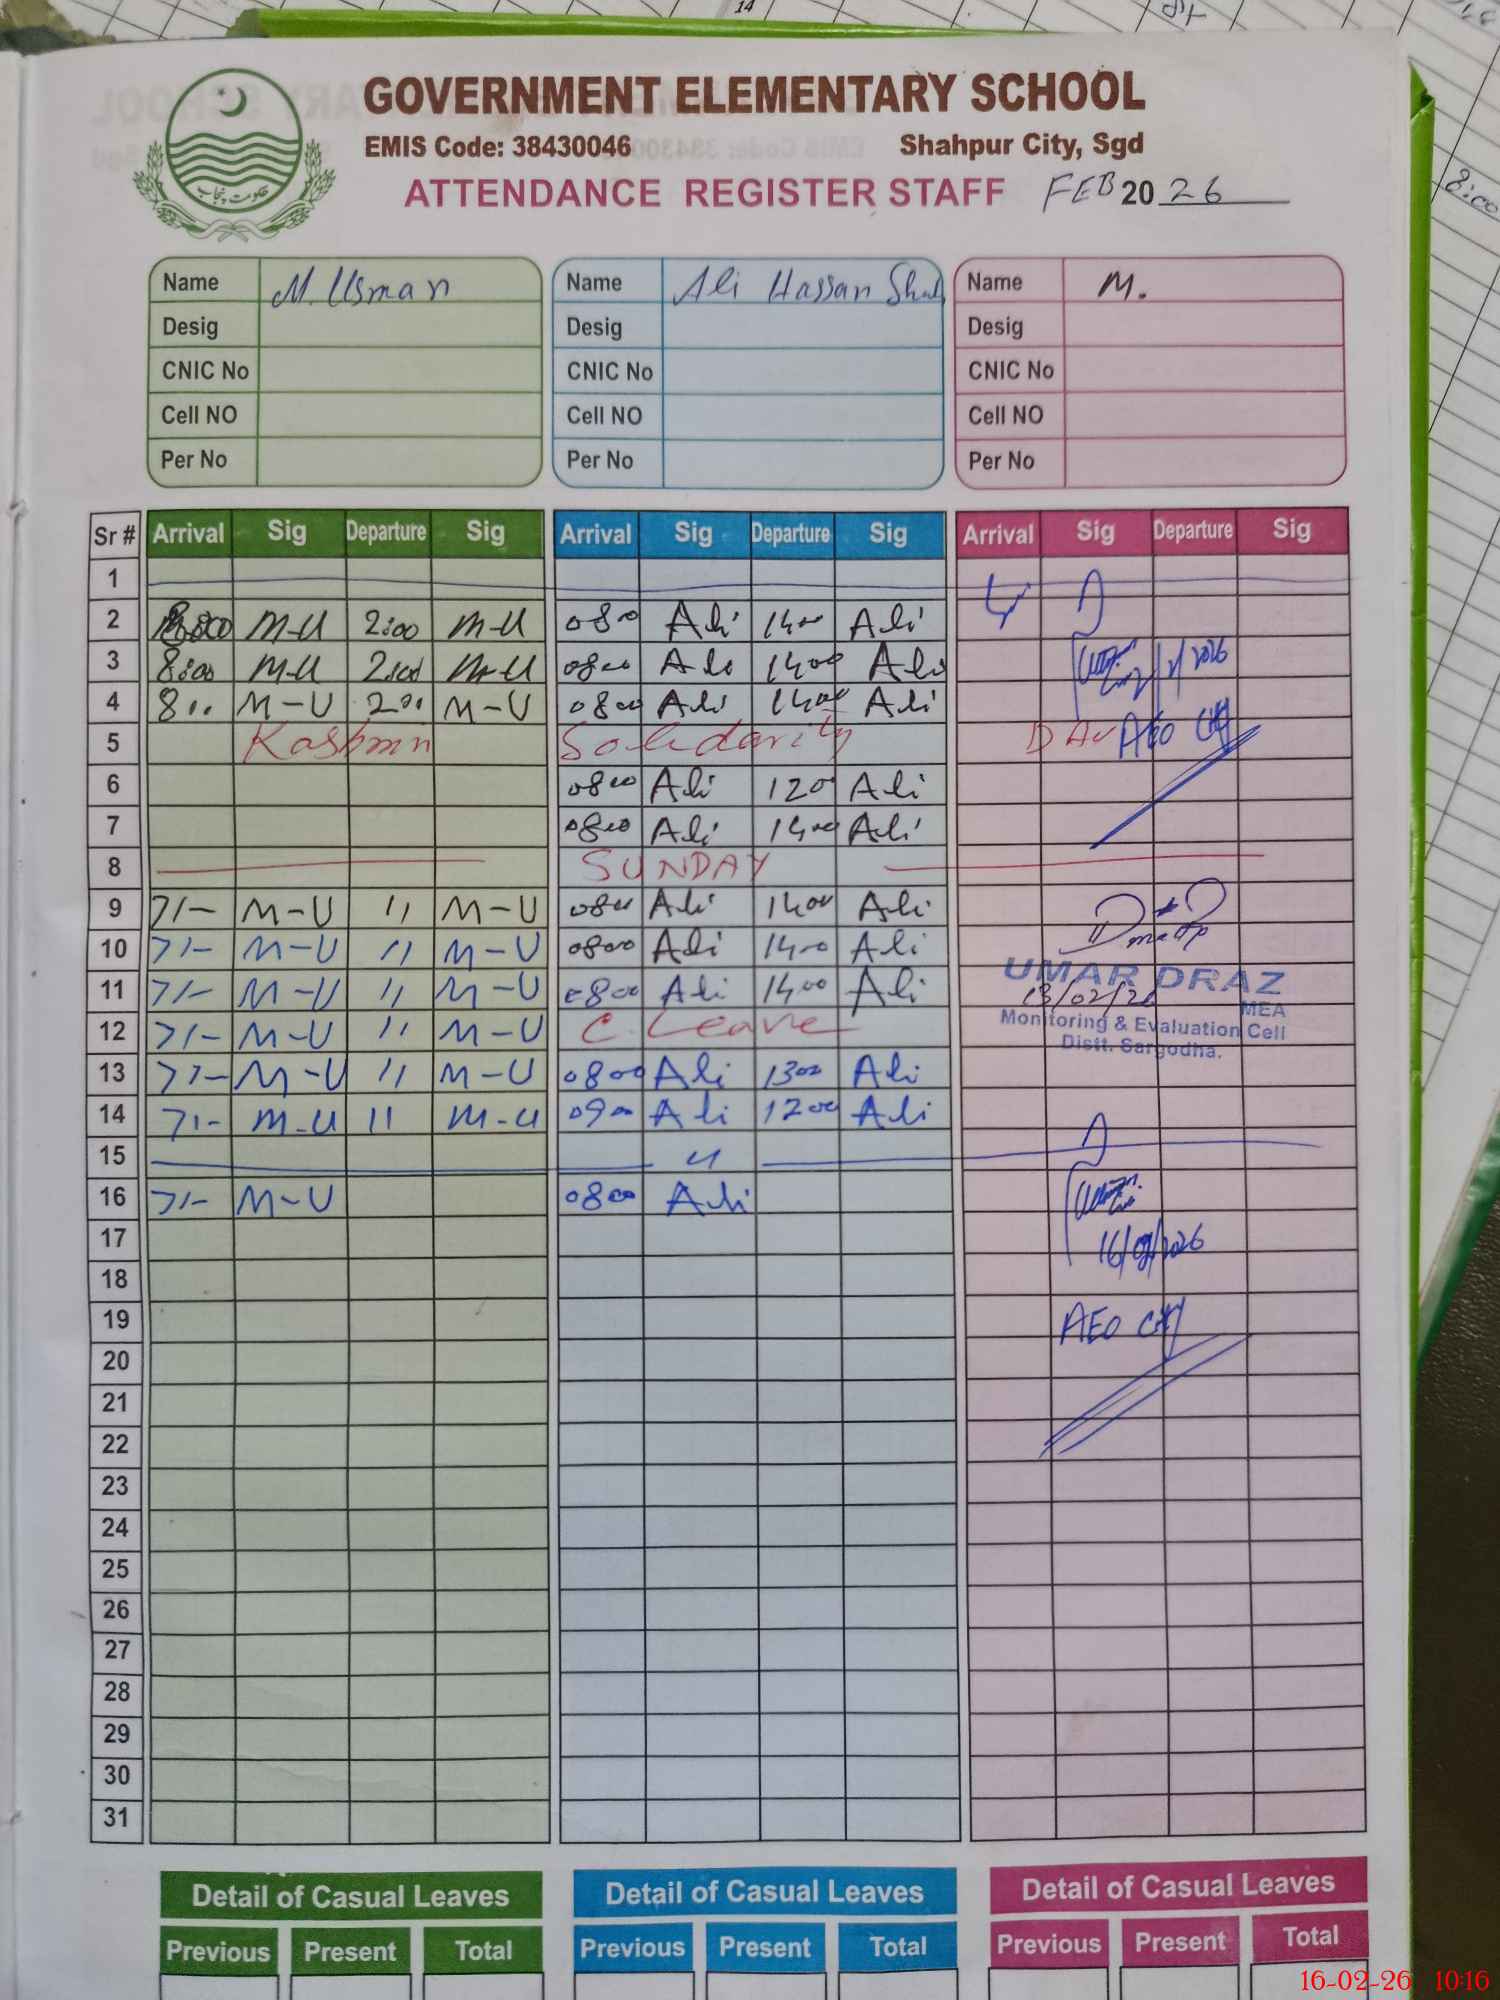 GOVERNMENT ELEMENTARY SCHOOL
EMIS Code: 38430046 Shahpur City, Sgd
ATTENDANCE REGISTER STAFF FEB 2026
حکومت پنجاب
Name M. Usman Name Ali Hassan Shah Name M.
Desig Desig Desig
CNIC No CNIC No CNIC No
Cell NO Cell NO Cell NO
Per No Per No Per No
Sr # Arrival Sig Departure Sig Arrival Sig Departure Sig Arrival Sig Departure Sig
1
2 8:00 M-U 2:00 M-U 0800 Ali 1400 Ali
3 8:00 M-U 2:00 M-U 0800 Ali 1400 Ali
4 8.. M-U 2.. M-U 0800 Ali 1400 Ali
5 Kashmir Solidarity DAY AEO City
6 0800 Ali 1200 Ali
7 0800 Ali 1400 Ali
8 SUNDAY
9 71- M-U 11 M-U 0800 Ali 1400 Ali
10 71- M-U 11 M-U 0800 Ali 1400 Ali
11 71- M-U 11 M-U 0800 Ali 1400 Ali
UMAR DRAZ
13/02/26
MEA
12 71- M-U 11 M-U C. Leave
Monitoring & Evaluation Cell
Distt. Sargodha.
13 71- M-U 11 M-U 0800 Ali 1300 Ali
14 71- M-U 11 M-U 0900 Ali 1200 Ali
15
16 71- M-U 0800 Ali
17 16/02/2026
18
19 AEO City
20
21
22
23
24
25
26
27
28
29
30
31
Detail of Casual Leaves Detail of Casual Leaves Detail of Casual Leaves
Previous Present Total Previous Present Total Previous Present Total
16-02-26 10:16